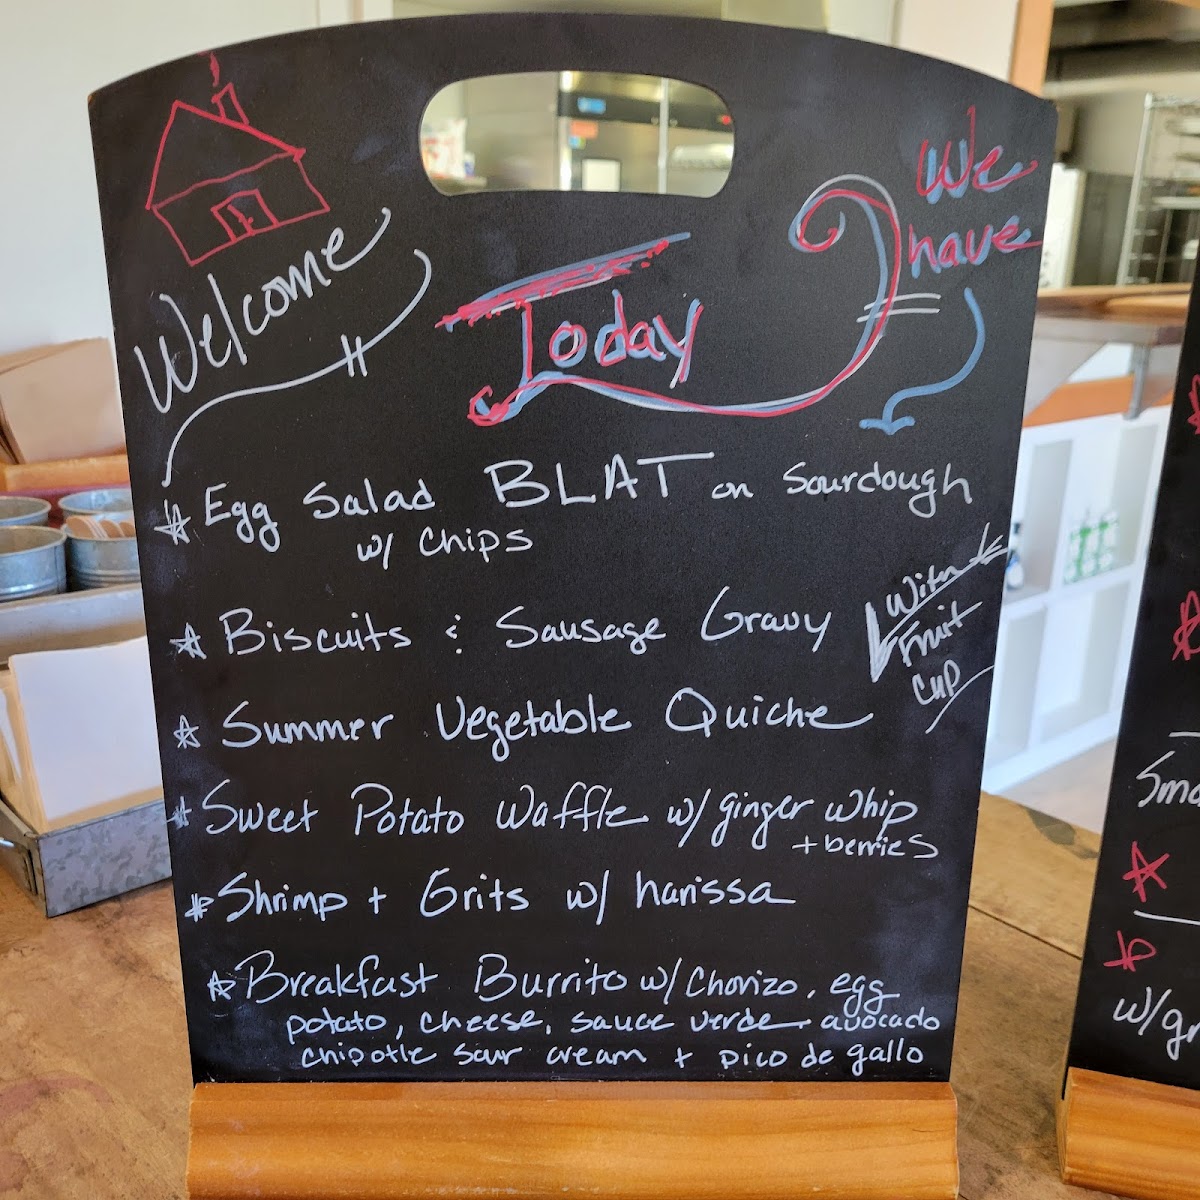 Welcome
Today
We
have
Egg Salad BLAT on Sourdough
w/ chips
Biscuits & Sausage Gravy
With
Fruit
Cup
Summer Vegetable Quiche
Sweet Potato Waffle w/ ginger whip
+ berries
Shrimp + Grits w/ harissa
Breakfast Burrito w/ Chorizo, egg
potato, cheese, sauce verde, avocado
chipotle sour cream + pico de gallo
w/